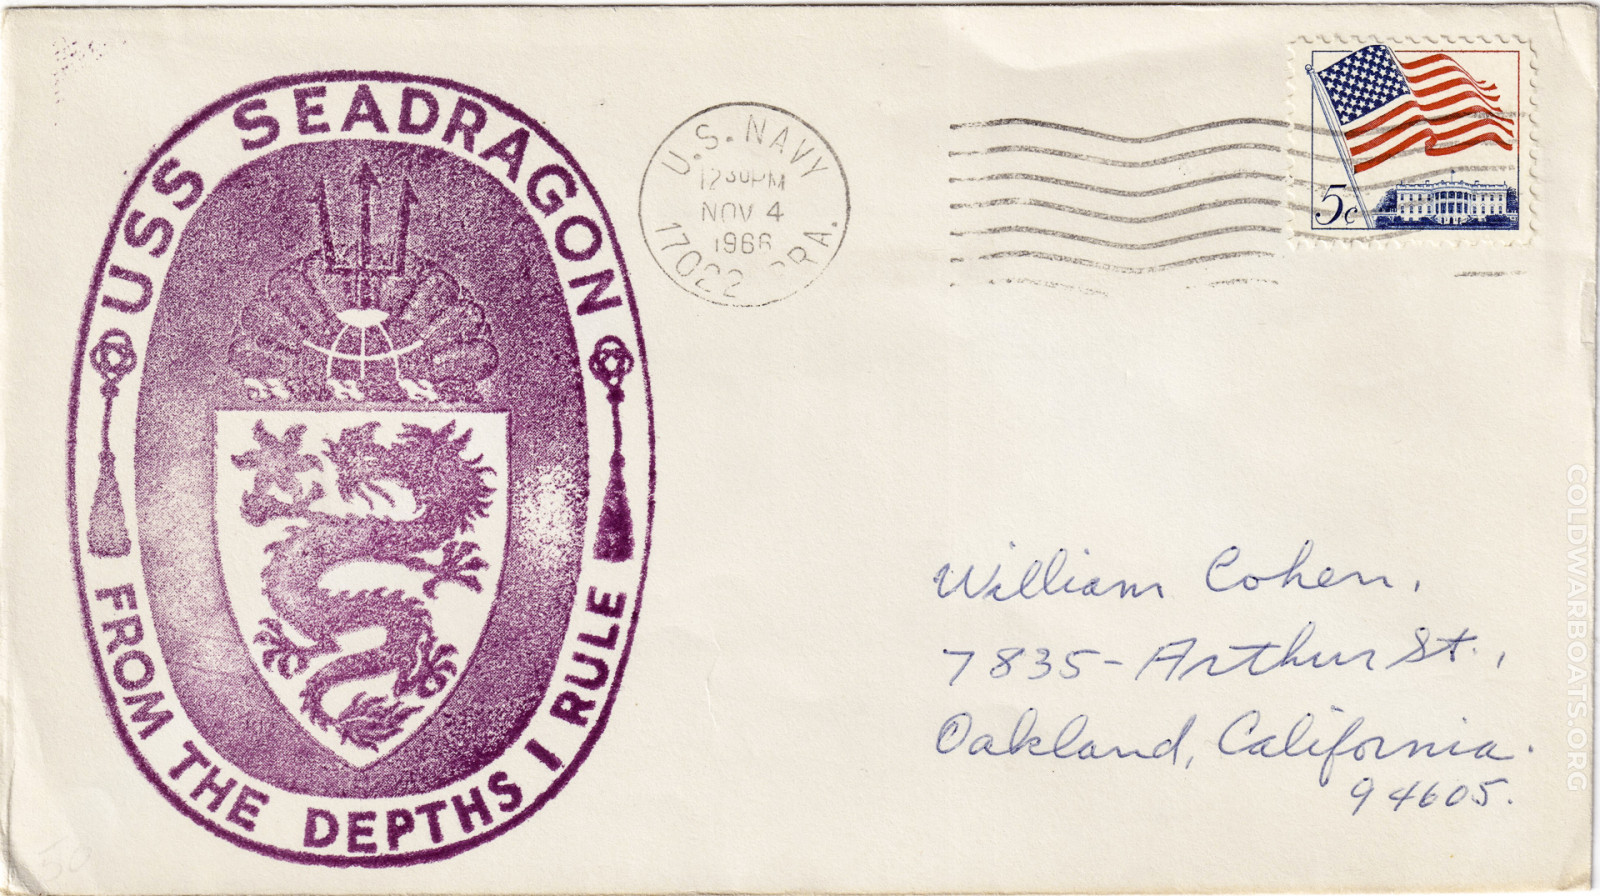 USS SEADRAGON
FROM THE DEPTHS I RULE
U.S. NAVY
12 30 PM
NOV 4
1966
17022 BRA.
5c
William Cohen,
7835- Arthur St.,
Oakland, California.
94605.
50
COLDWARBOATS.ORG